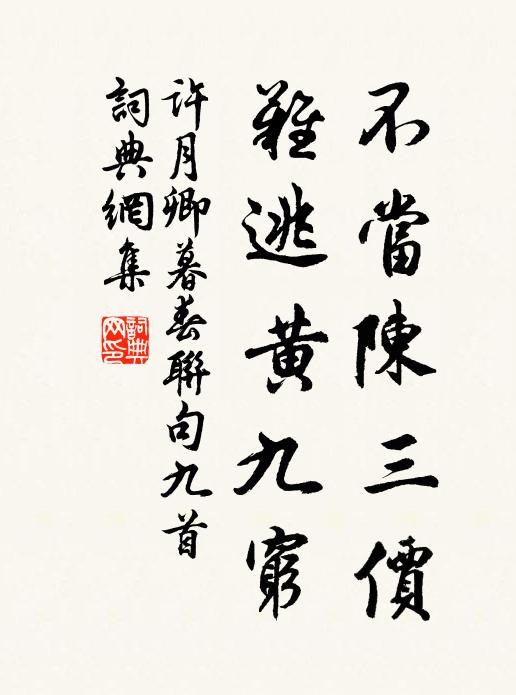 不當陳三價
難逃黄九窮
許月卿暮春聯句九首
詞典網集
詞典網印